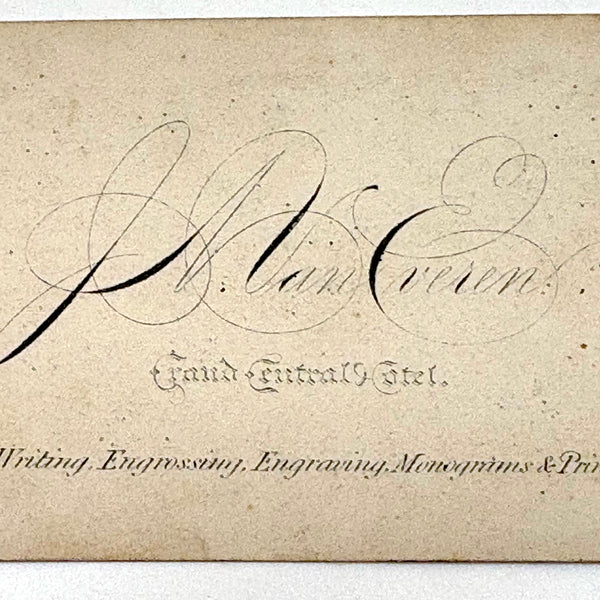 J. Van Everen
Grand Central Hotel.
Writing, Engrossing, Engraving, Monograms & Prin